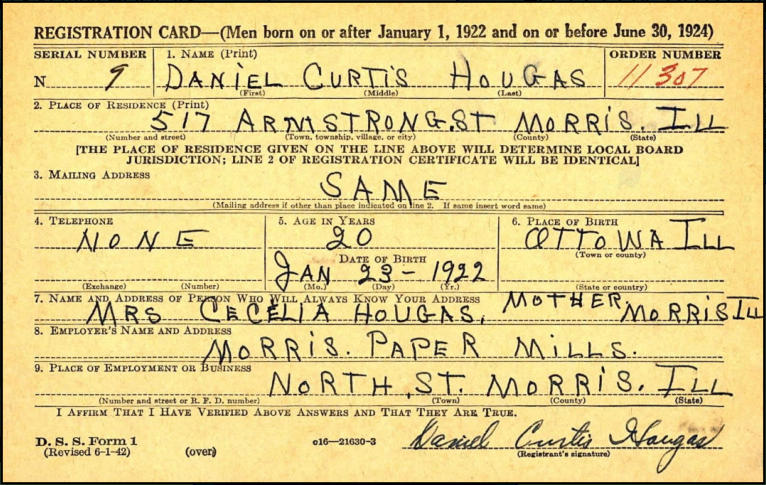 REGISTRATION CARD—(Men born on or after January 1, 1922 and on or before June 30, 1924)
SERIAL NUMBER 1. NAME (Print) ORDER NUMBER
N 9 DANIEL CURTIS HOUGAS 11307
(First) (Middle) (Last)
2. PLACE OF RESIDENCE (Print)
517 ARMSTRONG.ST MORRIS. ILL
(Number and street) (Town, township, village, or city) (County) (State)
[THE PLACE OF RESIDENCE GIVEN ON THE LINE ABOVE WILL DETERMINE LOCAL BOARD
JURISDICTION; LINE 2 OF REGISTRATION CERTIFICATE WILL BE IDENTICAL]
3. MAILING ADDRESS
SAME
(Mailing address if other than place indicated on line 2. If same insert word same)
4. TELEPHONE 5. AGE IN YEARS 6. PLACE OF BIRTH
NONE 20 OTTOWA ILL
DATE OF BIRTH (Town or county)
JAN 23 - 1922
(Exchange) (Number) (Mo.) (Day) (Yr.) (State or country)
7. NAME AND ADDRESS OF PERSON WHO WILL ALWAYS KNOW YOUR ADDRESS
MRS CECELIA HOUGAS, MOTHER MORRIS ILL
8. EMPLOYER'S NAME AND ADDRESS
MORRIS. PAPER MILLS.
9. PLACE OF EMPLOYMENT OR BUSINESS
NORTH. ST. MORRIS. ILL
(Number and street or R. F. D. number) (Town) (County) (State)
I AFFIRM THAT I HAVE VERIFIED ABOVE ANSWERS AND THAT THEY ARE TRUE.
D. S. S. Form 1 c16—21630-3 Daniel Curtis Hougas
(Revised 6-1-42) (over) (Registrant's signature)